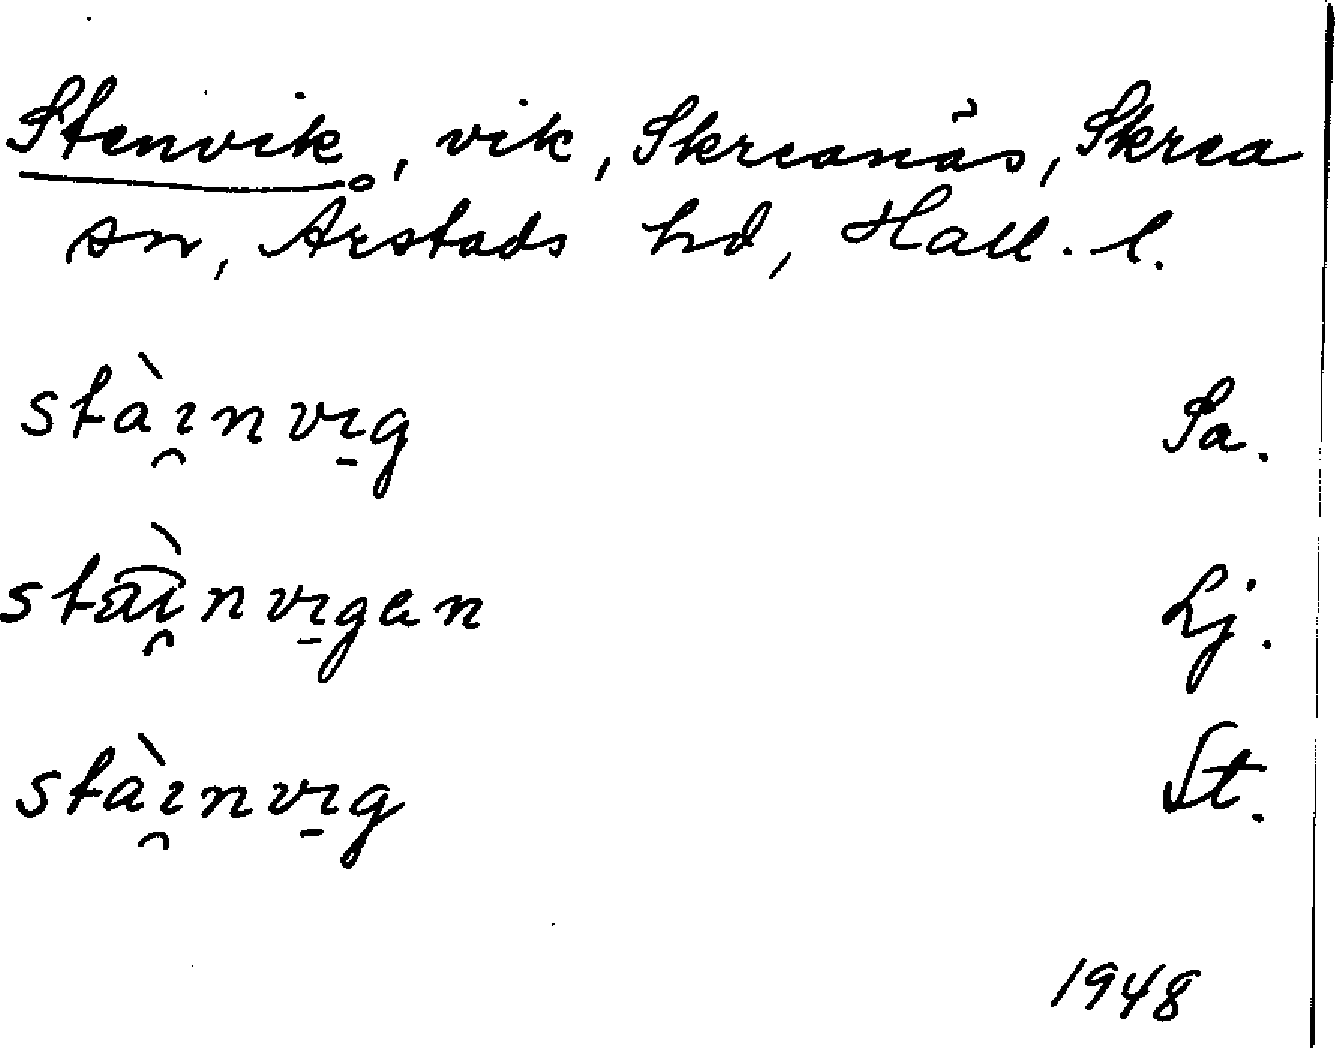 Stenvik, vik, Skreanäs, Skrea
sn, Årstads hd, Hall. l.
stàı̯nvı̱g Sa.
stàı̯nvı̱gen Lj.
stàı̯nvı̱g St.
1948